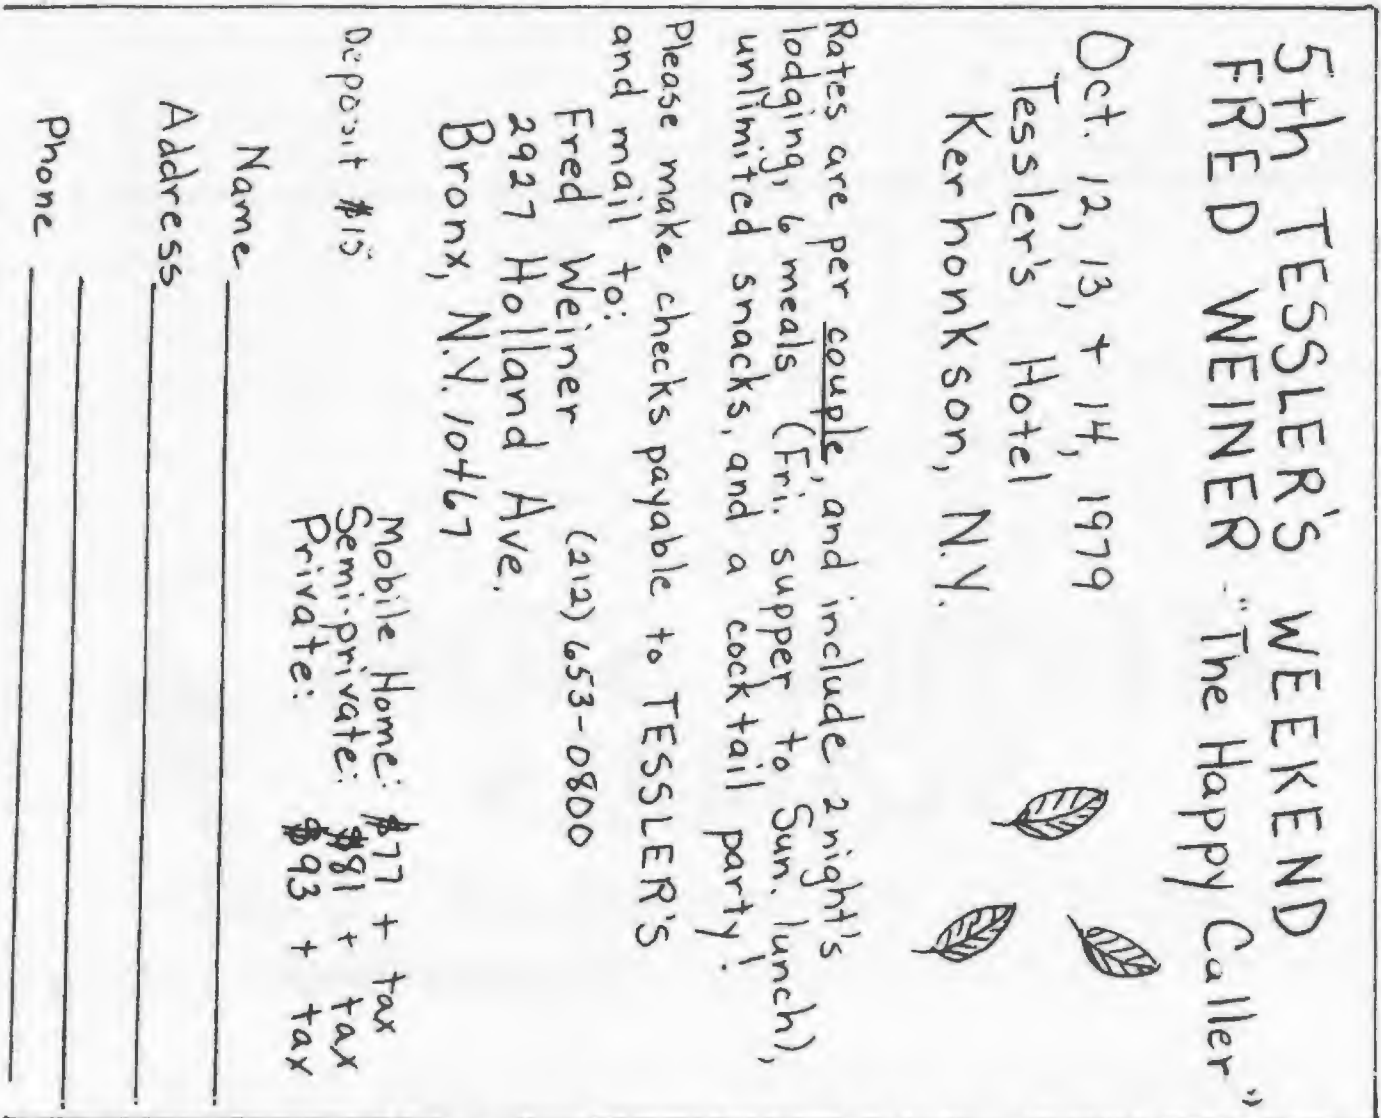 5th TESSLER'S WEEKEND
FRED WEINER - "The Happy Caller"
Oct. 12, 13, + 14, 1979
Tessler's Hotel
Kerhonkson, N.Y.
Rates are per couple, and include 2 night's
lodging, 6 meals (Fri. supper to Sun. lunch),
unlimited snacks, and a cocktail party!
Please make checks payable to TESSLER'S
and mail to:
Fred Weiner (212) 653-0800
2927 Holland Ave.
Bronx, N.Y. 10467
Mobile Home: $77 + tax
Deposit $15 Semi-private: $81 + tax
Private: $93 + tax
Name
Address
Phone